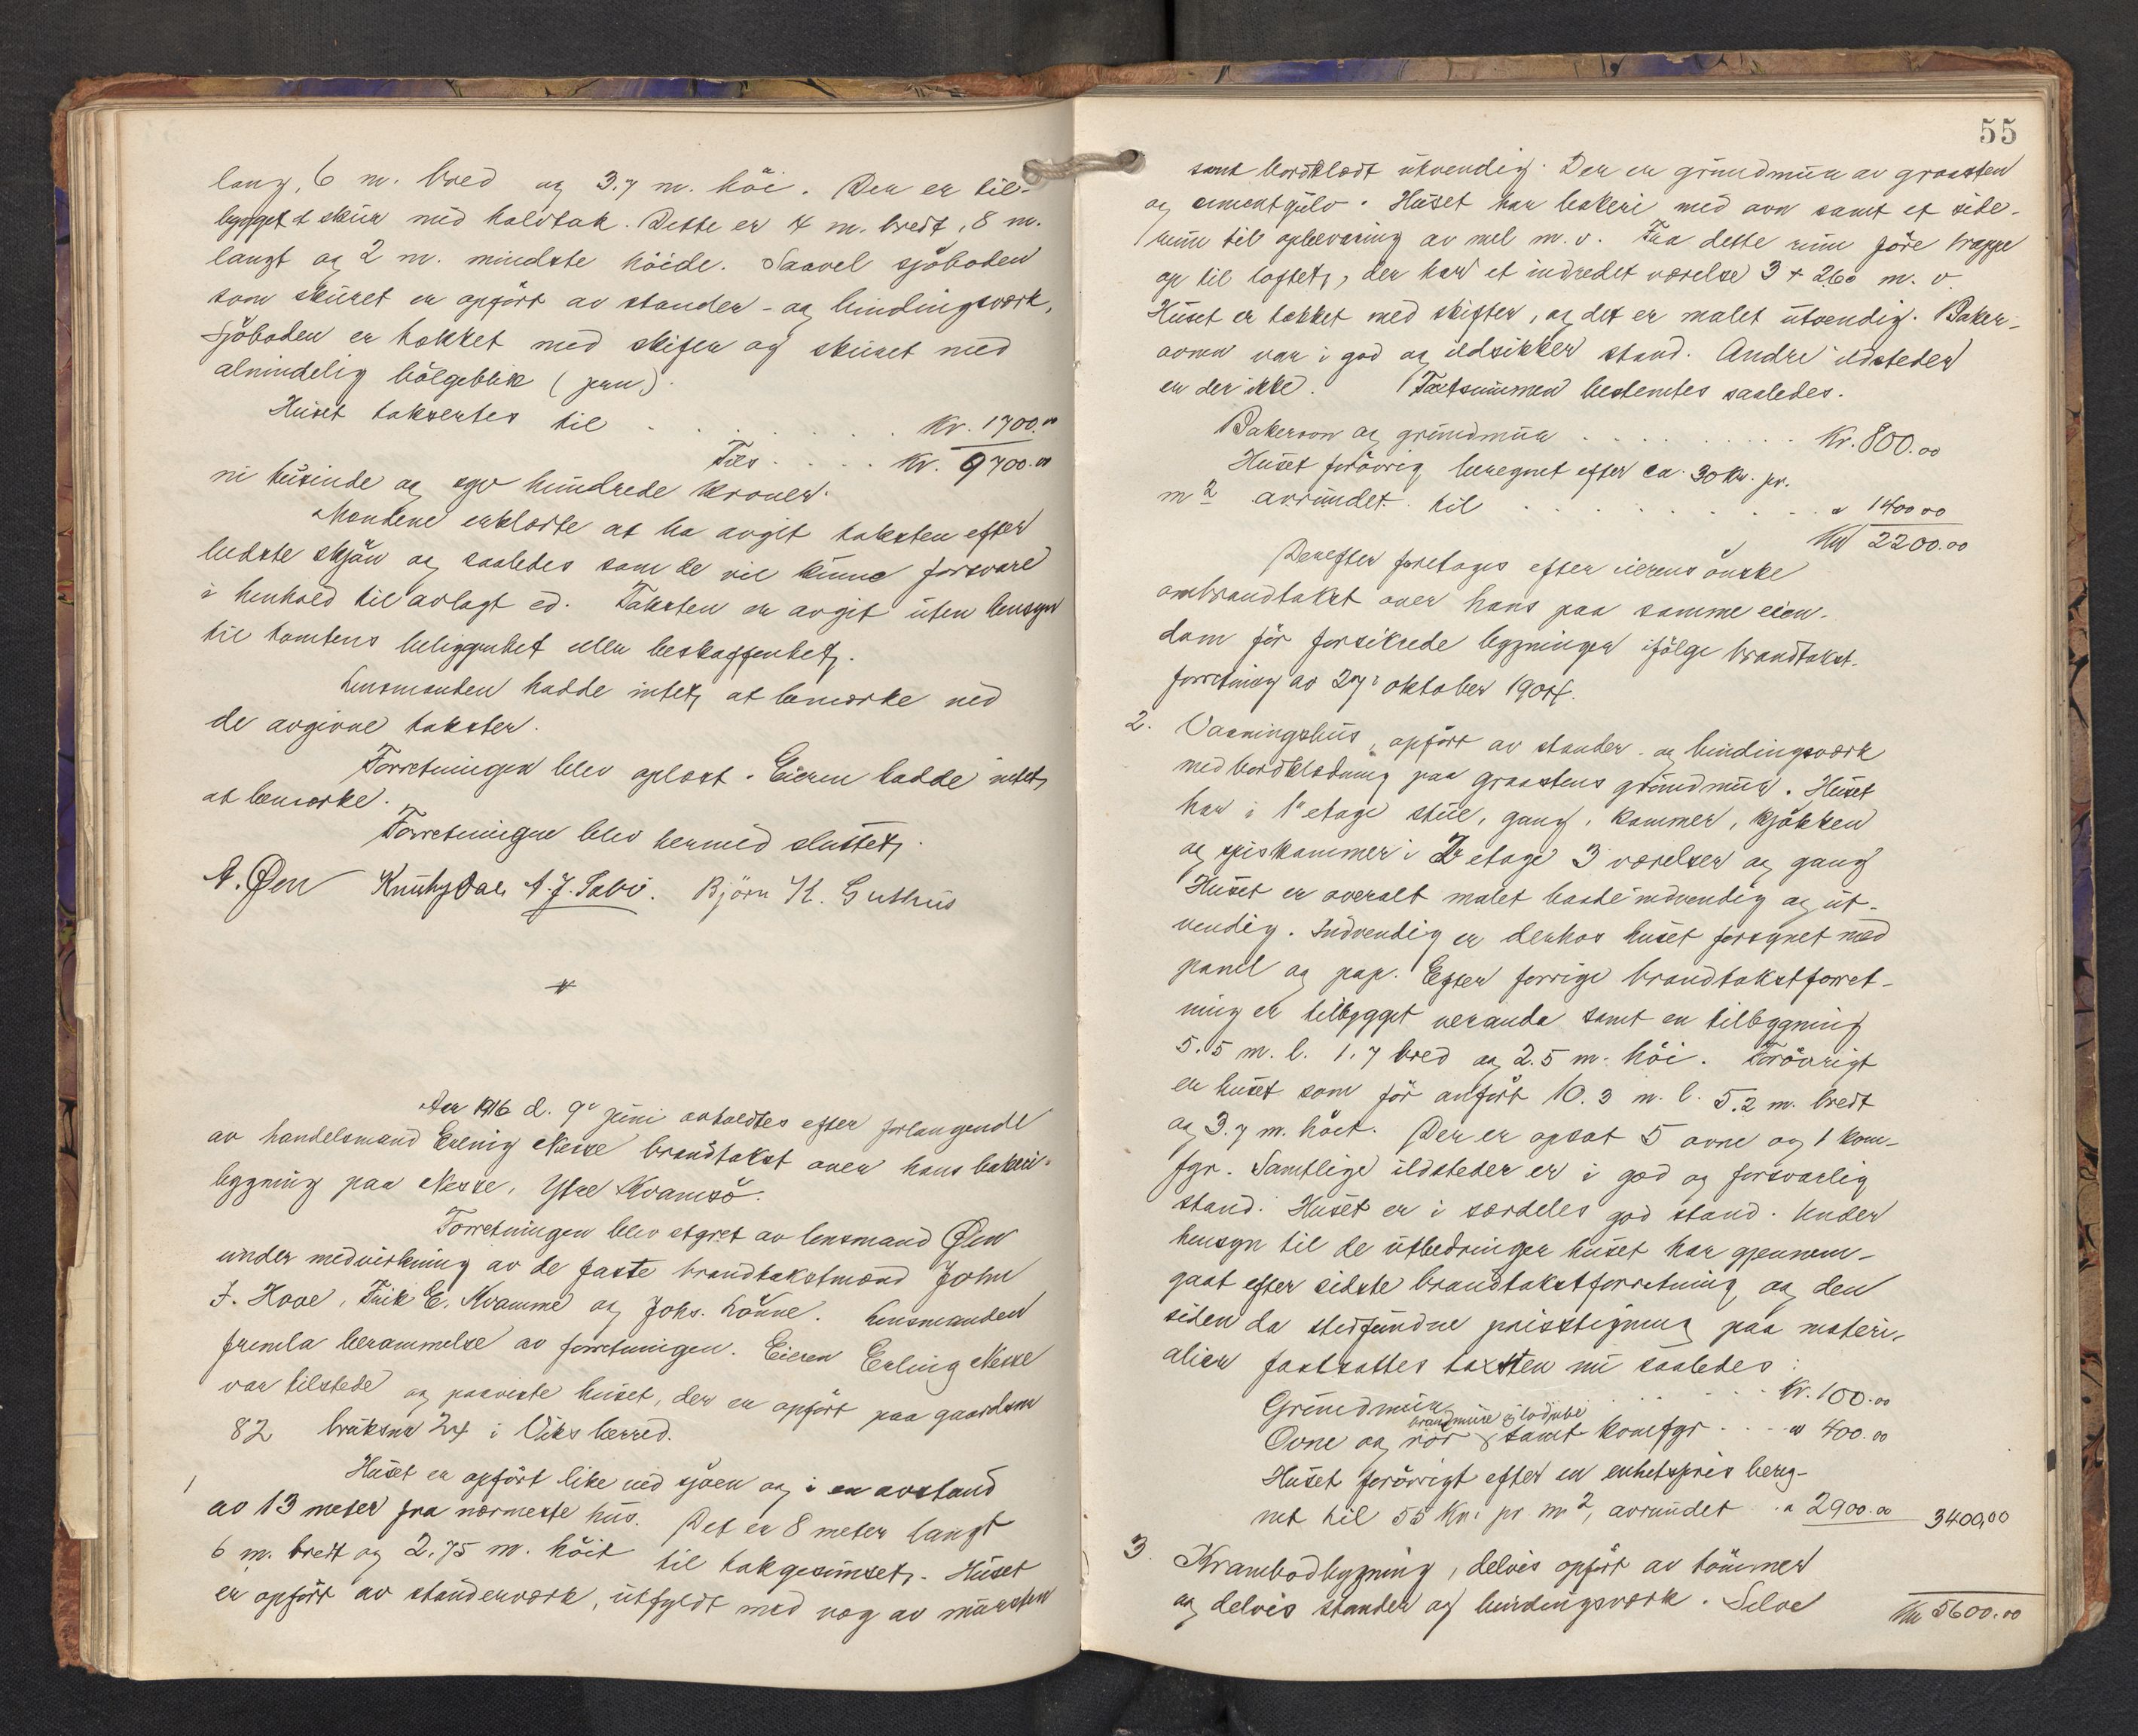 lang, 6 m. bred og 3.7 m. höi. Den er til-
bygget et skur med halvtak. Dette er 4 m. bredt, 8 m.
langt og 2 m. mindste höide. Saavel sjöboden
som skuret er opfört av stander- og bindingsverk,
Sjöboden er tækket med skifer og skuret med
almindelig bölgeblik (jern).
Huset taksertes til . . . . . . . Kr. 1700.00
Tils. . . . . Kr. 9700.00
ni tusinde og syv hundrede kroner.
Mændene erklærte at ha avgit taksten efter
bedste skjön og saaledes som de vil kunne forsvare
i henhold til avlagt ed. Taksten er avgit uten hensyn
til tomtens beliggenhet eller beskaffenhet.
Lensmanden hadde intet at bemærke ved
de avgivne takster.
Forretningen blev oplæst. Eieren hadde intet
at bemærke.
Forretningen blev hermed sluttet.
A. Øen Knut Dale A. J. Sabö. Björn K. Guthus
Aar 1916 d. 9de juni avholdtes efter forlangende
av handelsmand Erling Nesse brandtakst over hans bakeri-
bygning paa Nesse, Ytre Kvamsö.
Forretningen blev styret av lensmand Øen
under medvirkning av de faste brandtakstmænd John
J. Hove, Erik E. Kvamme og Johs. Lönne. Lensmanden
fremla berammelse av forretningen. Eieren Erling Nesse
var tilstede og paaviste huset, der er opfört paa gaardsnr
82 bruksnr 24 i Viks herred.
1 Huset er opfört like ved sjöen og i en avstand
av 13 meter fra nærmeste hus. Det er 8 meter langt
6 m. bredt og 2.75 m. höit til takgesimset. Huset
er opfört av standerverk, utfyldt med væg av mursten
55
samt bordklædt utvendig. Der er grundmur av graasten
og cementgulv. Huset har bakeri med ovn samt et side-
rum til opbevaring av mel m. v. Fra dette rum före trappe
op til loftet, der har et indredet værelse 3 + 2.60 m. v.
Huset er tækket med skifter, og det er malet utvendig. Baker-
ovnen var i god og ildsikker stand. Andre ildsteder
er der ikke. Takstsummen bestemtes saaledes.
Bakerovn og grundmur . . . . . . . Kr. 800.00
Huset forövrig beregnet efter ca. 30 kr. pr.
m2 avrundet til . . . . . . . " 1400 00
Kr 2200.00
Derefter foretoges efter eierens önske
ombrandtakst over hans paa samme eien-
dom för forsikrede bygninger ifölge brandtakst-
forretning av 27de oktober 1904.
2. Vaaningshus, opfört av stander- og bindingsverk
med bordklædning paa graastens grundmur. Huset
har i 1ste etage stue, gang, kammer, kjökken
og spiskammer i 2den etage 3 værelser og gang
Huset er overalt malet baade indvendig og ut-
vendig. Indvendig er derhos huset forsynet med
panel og pap. Efter forrige brandtakstforret-
ning er tilbygget veranda samt en tilbygning
5.5 m. l. 1.7 bred og 2.5 m. höi. Forövrigt
er huset som för anfört 10.3 m. l. 5.2 m. bredt
og 3.7 m. höit. Der er opsat 5 ovne og 1 kom-
fyr. Samtlige ildsteder er i god og forsvarlig
stand. Huset er i særdeles god stand. Under
hensyn til de utbedringer huset har gjennem-
gaat efter sidste brandtakstforretning og den
siden da stedfundne prisstigning paa materi-
alier fastsattes taksten nu saaledes:
Grundmur . . . . . . . Kr. 100.00
brandmure
Ovne og rör samt komfyr . . . . " 400.00
Huset forövrigt efter en enhetspris bereg-
net til 55 Kr. pr m2, avrundet . " 2900.00 3400.00
3. Krambodbygning, delvis opfört av tömmer
og delvis stander og bindingsverk. Selve
Kr 5600.00